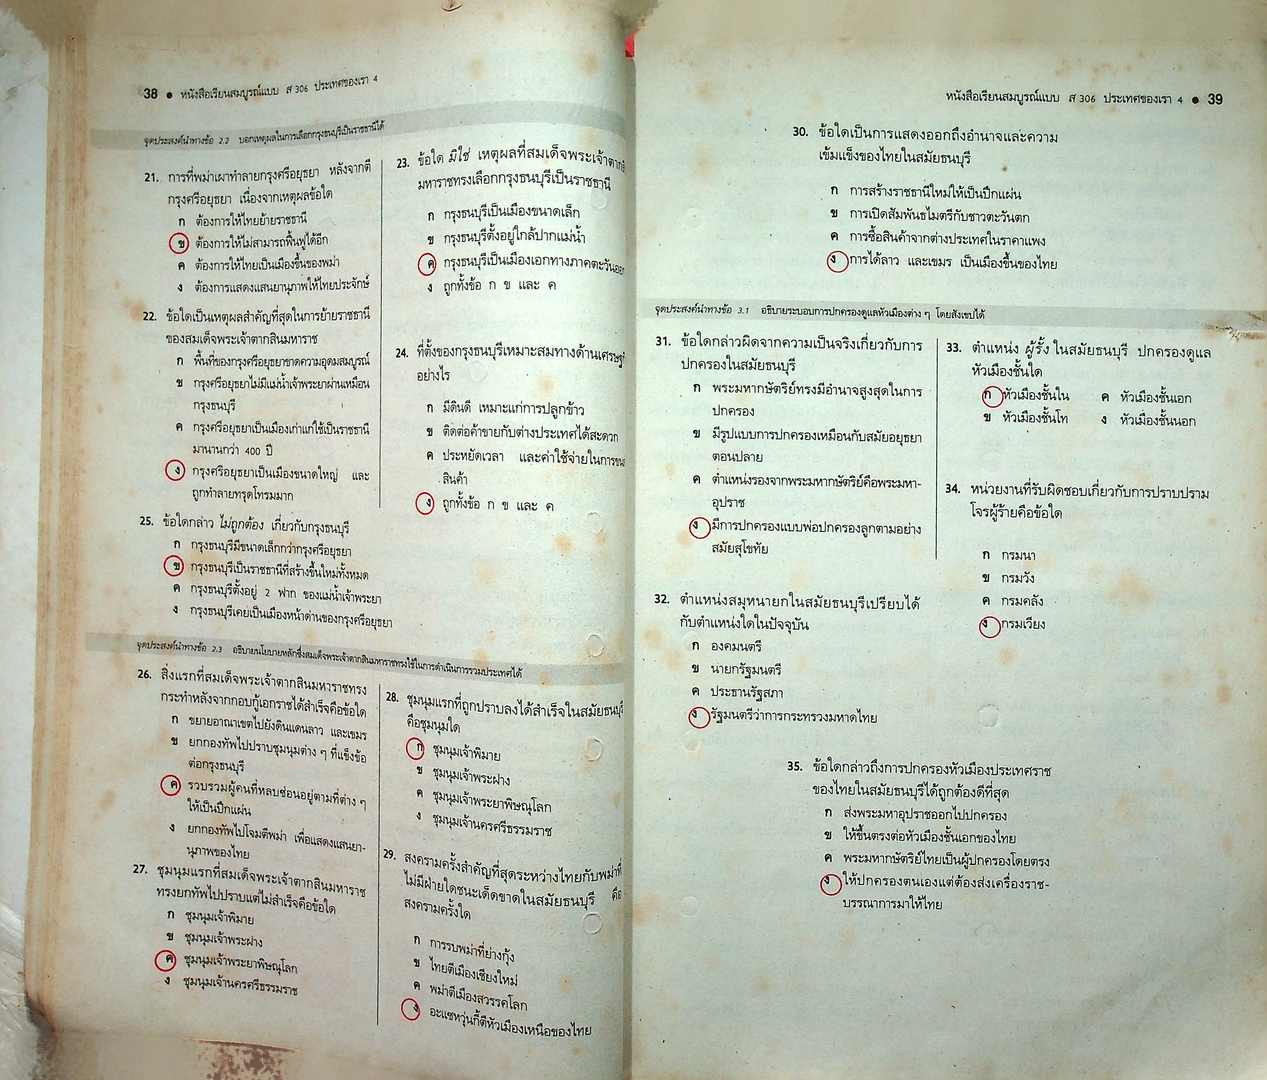 38 ● หนังสือเรียนสมบูรณ์แบบ ส 306 ประเทศของเรา 4
จุดประสงค์นำทางข้อ 2.2 บอกเหตุผลในการเลือกกรุงธนบุรีเป็นราชธานีได้
21. การที่พม่าเผาทำลายกรุงศรีอยุธยา หลังจากตี
กรุงศรีอยุธยา เนื่องจากเหตุผลข้อใด
ก ต้องการให้ไทยย้ายราชธานี
ข ต้องการให้ไม่สามารถฟื้นฟูได้อีก
ค ต้องการให้ไทยเป็นเมืองขึ้นของพม่า
ง ต้องการแสดงแสนยานุภาพให้ไทยประจักษ์
22. ข้อใดเป็นเหตุผลสำคัญที่สุดในการย้ายราชธานี
ของสมเด็จพระเจ้าตากสินมหาราช
ก พื้นที่ของกรุงศรีอยุธยาขาดความอุดมสมบูรณ์
ข กรุงศรีอยุธยาไม่มีแม่น้ำเจ้าพระยาผ่านเหมือน
กรุงธนบุรี
ค กรุงศรีอยุธยาเป็นเมืองเก่าแก่ใช้เป็นราชธานี
มานานกว่า 400 ปี
ง กรุงศรีอยุธยาเป็นเมืองขนาดใหญ่ และ
ถูกทำลายทรุดโทรมมาก
23. ข้อใด มิใช่ เหตุผลที่สมเด็จพระเจ้าตากสิ
มหาราชทรงเลือกกรุงธนบุรีเป็นราชธานี
ก กรุงธนบุรีเป็นเมืองขนาดเล็ก
ข กรุงธนบุรีตั้งอยู่ใกล้ปากแม่น้ำ
ค กรุงธนบุรีเป็นเมืองเอกทางภาคตะวันออก
ง ถูกทั้งข้อ ก ข และ ค
24. ที่ตั้งของกรุงธนบุรีเหมาะสมทางด้านเศรษฐ
อย่างไร
ก มีดินดี เหมาะแก่การปลูกข้าว
ข ติดต่อค้าขายกับต่างประเทศได้สะดวก
ค ประหยัดเวลา และค่าใช้จ่ายในการขน
สินค้า
ง ถูกทั้งข้อ ก ข และ ค
25. ข้อใดกล่าว ไม่ถูกต้อง เกี่ยวกับกรุงธนบุรี
ก กรุงธนบุรีมีขนาดเล็กกว่ากรุงศรีอยุธยา
ข กรุงธนบุรีเป็นราชธานีที่สร้างขึ้นใหม่ทั้งหมด
ค กรุงธนบุรีตั้งอยู่ 2 ฟาก ของแม่น้ำเจ้าพระยา
ง กรุงธนบุรีเคยเป็นเมืองหน้าด่านของกรุงศรีอยุธยา
จุดประสงค์นำทางข้อ 2.3 อธิบายนโยบายหลักซึ่งสมเด็จพระเจ้าตากสินมหาราชทรงใช้ในการดำเนินการรวมประเทศได้
26. สิ่งแรกที่สมเด็จพระเจ้าตากสินมหาราชทรง
กระทำหลังจากกอบกู้เอกราชได้สำเร็จคือข้อใด
ก ขยายอาณาเขตไปยังดินแดนลาว และเขมร
ข ยกกองทัพไปปราบชุมนุมต่าง ๆ ที่แข็งข้อ
ต่อกรุงธนบุรี
ค รวบรวมผู้คนที่หลบซ่อนอยู่ตามที่ต่าง ๆ
ให้เป็นปึกแผ่น
ง ยกกองทัพไปโจมตีพม่า เพื่อแสดงแสนยา-
นุภาพของไทย
27. ชุมนุมแรกที่สมเด็จพระเจ้าตากสินมหาราช
ทรงยกทัพไปปราบแต่ไม่สำเร็จคือข้อใด
ก ชุมนุมเจ้าพิมาย
ข ชุมนุมเจ้าพระฝาง
ค ชุมนุมเจ้าพระยาพิษณุโลก
ง ชุมนุมเจ้านครศรีธรรมราช
28. ชุมนุมแรกที่ถูกปราบลงได้สำเร็จในสมัยธนบุรี
คือชุมนุมใด
ก ชุมนุมเจ้าพิมาย
ข ชุมนุมเจ้าพระฝาง
ค ชุมนุมเจ้าพระยาพิษณุโลก
ง ชุมนุมเจ้านครศรีธรรมราช
29. สงครามครั้งสำคัญที่สุดระหว่างไทยกับพม่าที่
ไม่มีฝ่ายใดชนะเด็ดขาดในสมัยธนบุรี คือ
สงครามครั้งใด
ก การรบพม่าที่บางกุ้ง
ข ไทยตีเมืองเชียงใหม่
ค พม่าตีเมืองสวรรคโลก
ง อะแซหวุ่นกี้ตีหัวเมืองเหนือของไทย
หนังสือเรียนสมบูรณ์แบบ ส 306 ประเทศของเรา 4 ● 39
30. ข้อใดเป็นการแสดงออกถึงอำนาจและความ
เข้มแข็งของไทยในสมัยธนบุรี
ก การสร้างราชธานีใหม่ให้เป็นปึกแผ่น
ข การเปิดสัมพันธไมตรีกับชาวตะวันตก
ค การซื้อสินค้าจากต่างประเทศในราคาแพง
ง การได้ลาว และเขมร เป็นเมืองขึ้นของไทย
จุดประสงค์นำทางข้อ 3.1 อธิบายระบอบการปกครองดูแลหัวเมืองต่าง ๆ โดยสังเขปได้
31. ข้อใดกล่าวผิดจากความเป็นจริงเกี่ยวกับการ
ปกครองในสมัยธนบุรี
ก พระมหากษัตริย์ทรงมีอำนาจสูงสุดในการ
ปกครอง
ข มีรูปแบบการปกครองเหมือนกับสมัยอยุธยา
ตอนปลาย
ค ตำแหน่งรองจากพระมหากษัตริย์คือพระมหา-
อุปราช
ง มีการปกครองแบบพ่อปกครองลูกตามอย่าง
สมัยสุโขทัย
32. ตำแหน่งสมุหนายกในสมัยธนบุรีเปรียบได้
กับตำแหน่งใดในปัจจุบัน
ก องคมนตรี
ข นายกรัฐมนตรี
ค ประธานรัฐสภา
ง รัฐมนตรีว่าการกระทรวงมหาดไทย
33. ตำแหน่ง ผู้รั้ง ในสมัยธนบุรี ปกครองดูแล
หัวเมืองชั้นใด
ก หัวเมืองชั้นใน ค หัวเมืองชั้นเอก
ข หัวเมืองชั้นโท ง หัวเมืองชั้นนอก
34. หน่วยงานที่รับผิดชอบเกี่ยวกับการปราบปราม
โจรผู้ร้ายคือข้อใด
ก กรมนา
ข กรมวัง
ค กรมคลัง
ง กรมเวียง
35. ข้อใดกล่าวถึงการปกครองหัวเมืองประเทศราช
ของไทยในสมัยธนบุรีได้ถูกต้องดีที่สุด
ก ส่งพระมหาอุปราชออกไปปกครอง
ข ให้ขึ้นตรงต่อหัวเมืองชั้นเอกของไทย
ค พระมหากษัตริย์ไทยเป็นผู้ปกครองโดยตรง
ง ให้ปกครองตนเองแต่ต้องส่งเครื่องราช-
บรรณาการมาให้ไทย